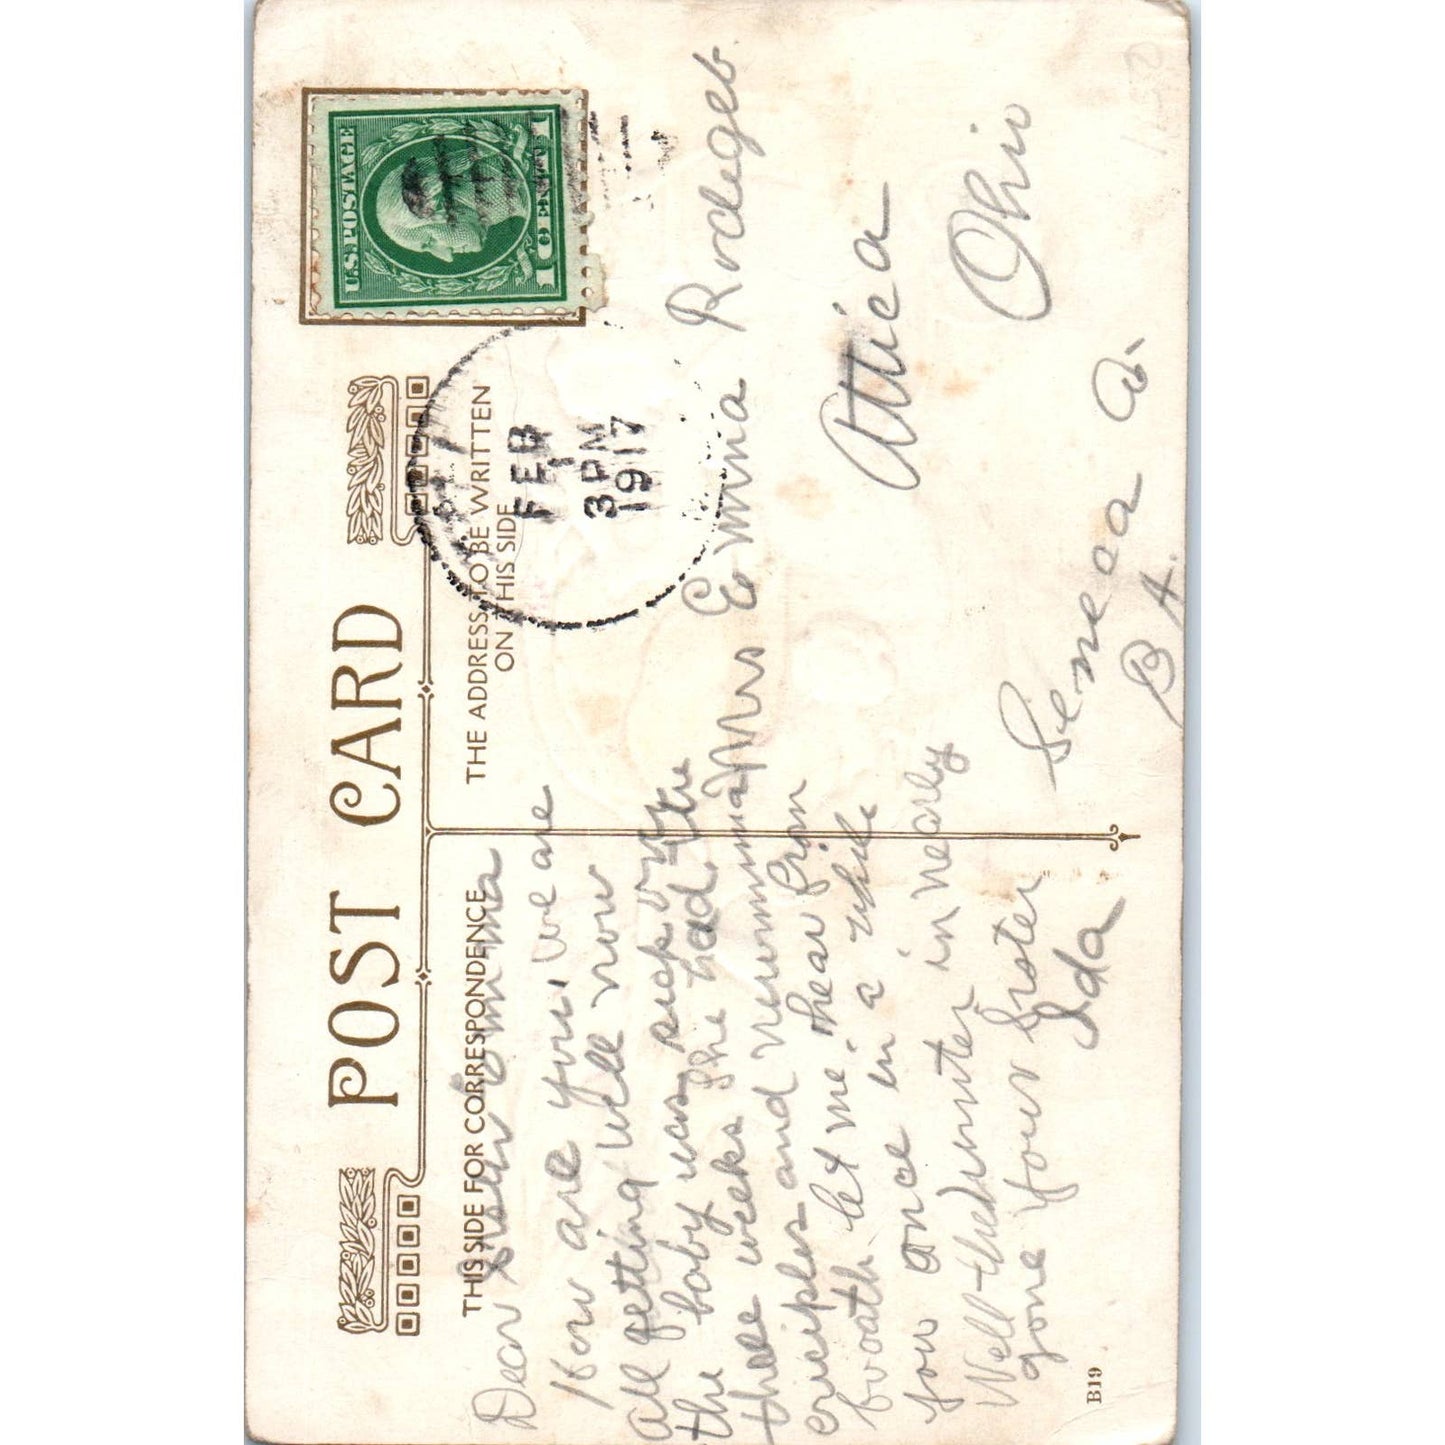 POST CARD
THIS SIDE FOR CORRESPONDENCE
THE ADDRESS TO BE WRITTEN
ON THIS SIDE
U.S. POSTAGE
1 ONE 1
FEB
1
3 PM
1917
Dear Emma
How are you. we are
all getting well now
the baby was sick
three weeks She had the
and
let me hear from
you once in a while
Well winter in nearly
gone Your Sister
Ida
Mrs Emma Rodegeb
Attica
Ohio
Seneca Co.
B19